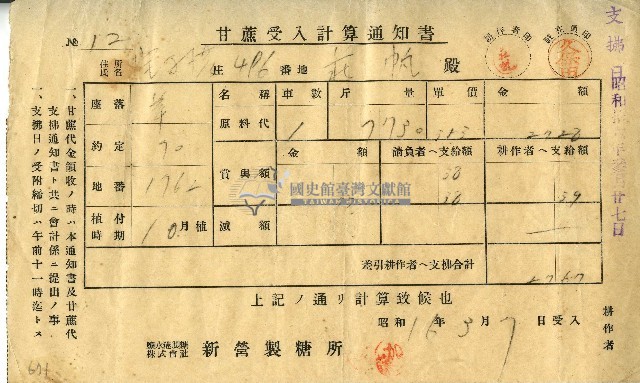 甘蔗受入計算通知書
№ 12
住所
氏名
庄 496 番地 莊 帆 殿
印 任 主
印 係
座落 草
約定 70
地番 1762
植付時期 10月植
名稱 車數 斤量 單價 金額
原料代 1 7730 2728
金額 請負者ヘ支給額 耕作者ヘ支給額
賞與額 38
38 39
減額
差引耕作者ヘ支拂合計 2767
上記ノ通リ計算致候也
昭和 年 3 月 7 日受入
株式會社 新營製糖所
耕作者
一、甘蔗代金領收ノ時ハ本通知書及甘蔗代
支拂通知書ト共ニ會計係ニ提出ノ事
一、支拂日ノ受附締切ハ午前十一時迄トス
支拂日昭和 年 月廿七日
國史館臺灣文獻館
TAIWAN HISTORICA